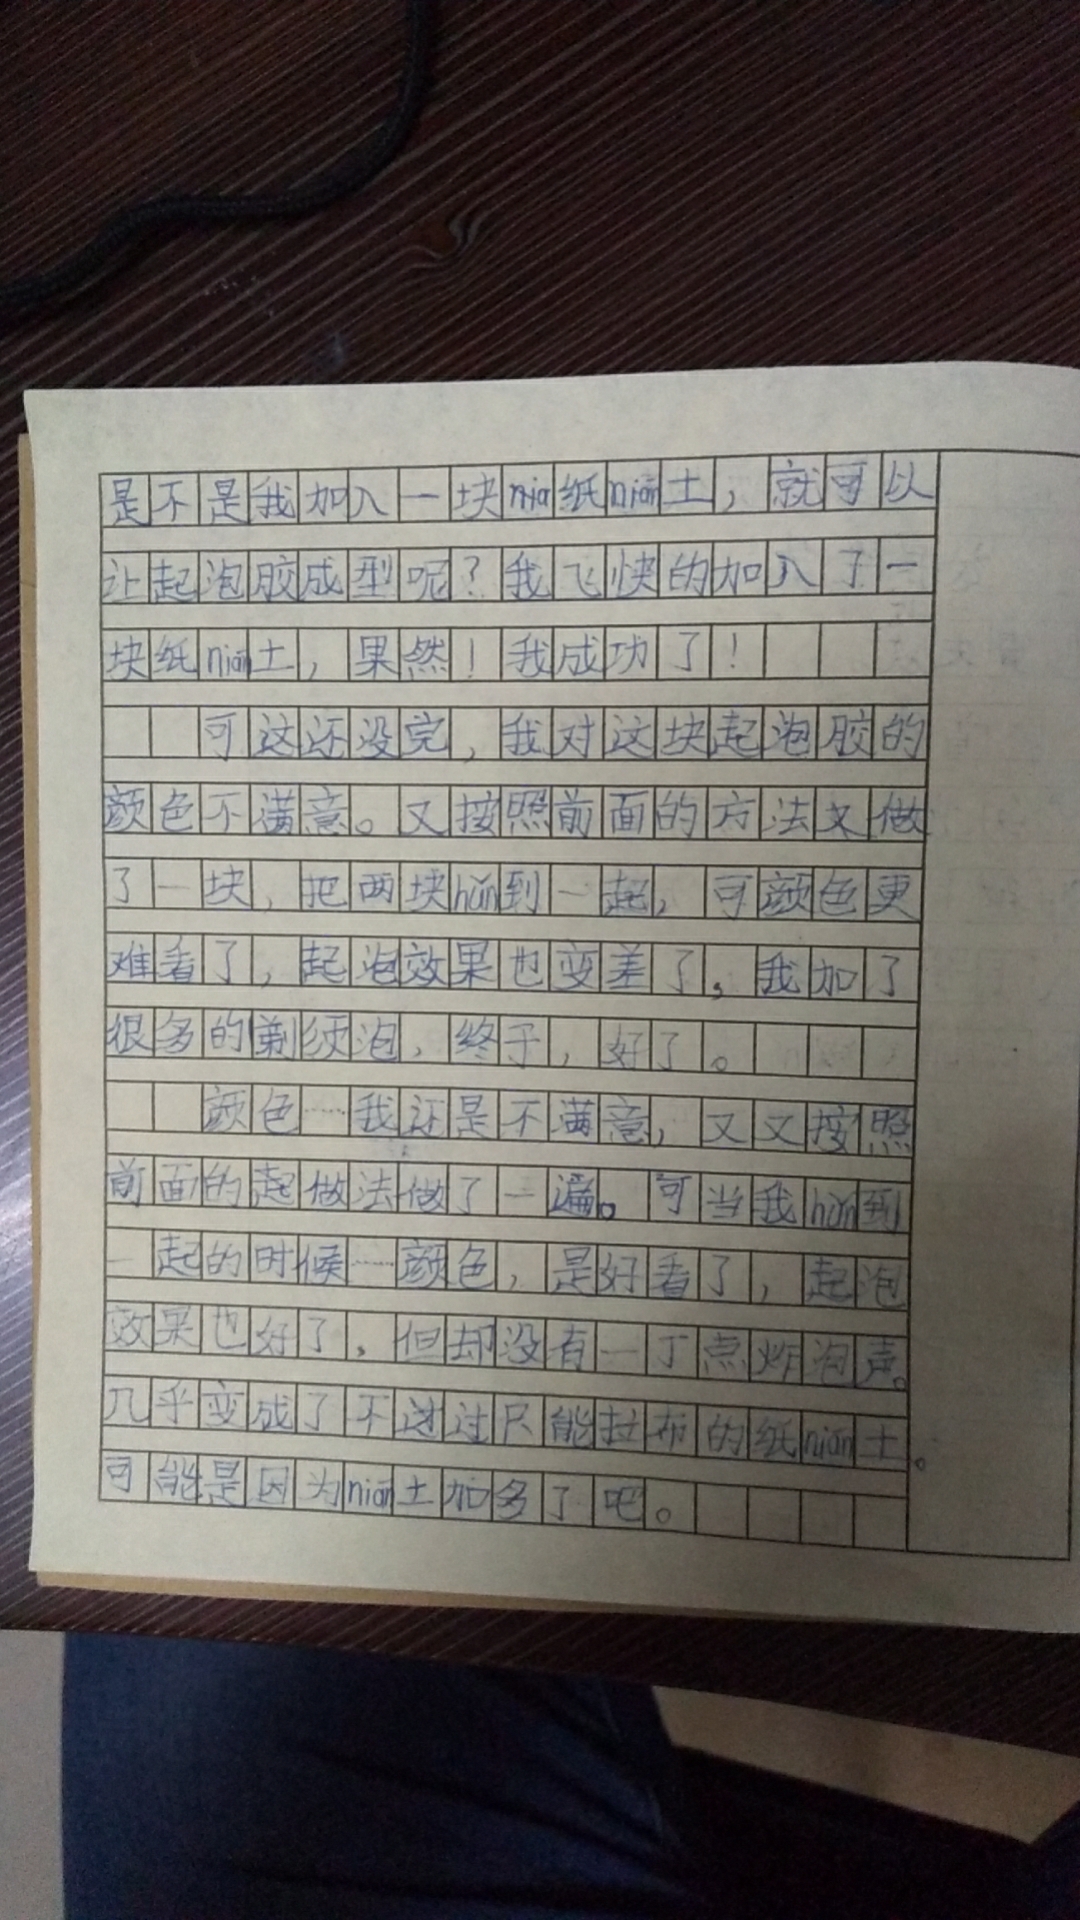 是不是我加入一块nia纸nián土，就可以
让起泡胶成型呢？我飞快的加入了一
块纸nián土，果然！我成功了！
可这还没完，我对这块起泡胶的
颜色不满意。又按照前面的方法又做
了一块，把两块hǔn到一起，可颜色更
难看了，起泡效果也变差了，我加了
很多的剃须泡，终于，好了。
颜色……我还是不满意，又又按照
前面的起做法做了一遍。可当我hǔn到
一起的时候……颜色，是好看了，起泡
效果也好了，但却没有一丁点炸泡声。
几乎变成了不过过只能拉布的纸nián土。
可能是因为nián土加多了吧。